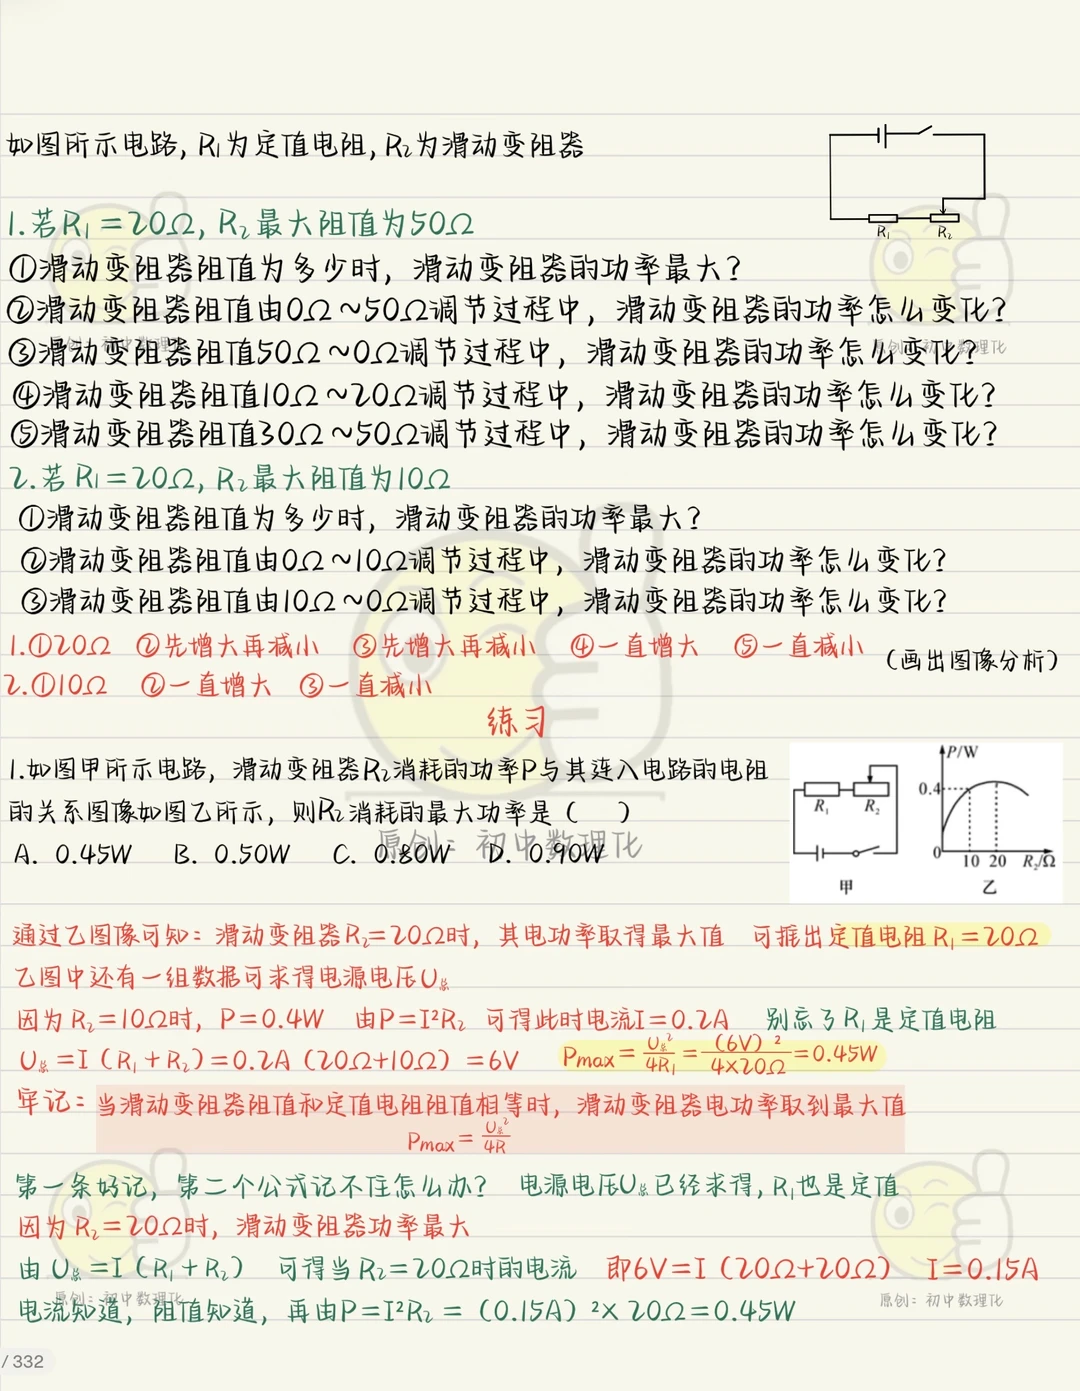 如图所示电路, R₁为定值电阻, R₂为滑动变阻器
R₁ R₂
1.若R₁=20Ω, R₂最大阻值为50Ω
①滑动变阻器阻值为多少时, 滑动变阻器的功率最大?
②滑动变阻器阻值由0Ω~50Ω调节过程中, 滑动变阻器的功率怎么变化?
③滑动变阻器阻值50Ω~0Ω调节过程中, 滑动变阻器的功率怎么变化?
④滑动变阻器阻值10Ω~20Ω调节过程中, 滑动变阻器的功率怎么变化?
⑤滑动变阻器阻值30Ω~50Ω调节过程中, 滑动变阻器的功率怎么变化?
2.若R₁=20Ω, R₂最大阻值为10Ω
①滑动变阻器阻值为多少时, 滑动变阻器的功率最大?
②滑动变阻器阻值由0Ω~10Ω调节过程中, 滑动变阻器的功率怎么变化?
③滑动变阻器阻值由10Ω~0Ω调节过程中, 滑动变阻器的功率怎么变化?
1.①20Ω ②先增大再减小 ③先增大再减小 ④一直增大 ⑤一直减小 (画出图像分析)
2.①10Ω ②一直增大 ③一直减小
练习
1.如图甲所示电路, 滑动变阻器R₂消耗的功率P与其连入电路的电阻
的关系图像如图乙所示, 则R₂消耗的最大功率是( )
A. 0.45W B. 0.50W C. 0.80W D. 0.90W
R₁ R₂
甲
P/W
0.4
0 10 20 R₂/Ω
乙
通过乙图像可知: 滑动变阻器R₂=20Ω时, 其电功率取得最大值 可推出定值电阻R₁=20Ω
乙图中还有一组数据可求得电源电压U总
因为R₂=10Ω时, P=0.4W 由P=I²R₂ 可得此时电流I=0.2A 别忘了R₁是定值电阻
U总=I(R₁+R₂)=0.2A(20Ω+10Ω)=6V Pmax=U总²/4R₁=(6V)²/4×20Ω=0.45W
牢记: 当滑动变阻器阻值和定值电阻阻值相等时, 滑动变阻器电功率取到最大值
Pmax=U总²/4R
第一条好记, 第二个公式记不住怎么办? 电源电压U总已经求得, R₁也是定值
因为R₂=20Ω时, 滑动变阻器功率最大
由U总=I(R₁+R₂) 可得当R₂=20Ω时的电流 即6V=I(20Ω+20Ω) I=0.15A
电流知道, 阻值知道, 再由P=I²R₂=(0.15A)²×20Ω=0.45W
原创: 初中数理化
原创: 初中数理化
原创: 初中数理化
原创: 初中数理化
原创: 初中数理化
/ 332